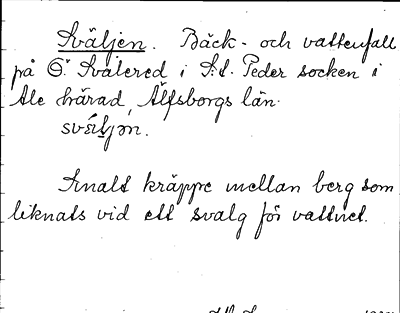 Sväljen. Bäck- och vattenfall
på Ö. Svälered i S:t. Peder socken i
Ale härad, Älfsborgs län.
Smalt kräppe mellan berg som
liknats vid ett svalg för vattnet.